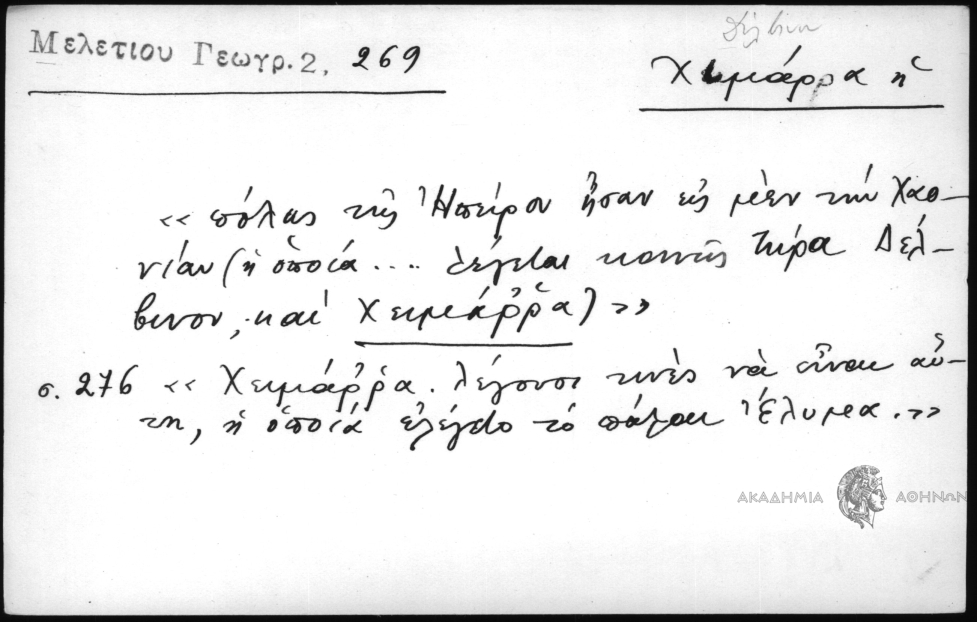 Δέλβινον
Μελετίου Γεωγρ. 2, 269
Χιμάρρα ἡ
« πόλεις τῆς Ἠπείρου ἦσαν εἰς μὲν τὴν Χαο-
νίαν (ἡ ὁποία .... λέγεται κοινῶς τώρα Δέλ-
βινον, καὶ Χειμάῤῥα) »
σ. 276 « Χειμάῤῥα. λέγουσι τινὲς νὰ εἶναι αὕ-
τη, ἡ ὁποία ἐλέγετο τὸ πάλαι Ἔλυμα. »
ΑΚΑΔΗΜΙΑ ΑΘΗΝΩΝ